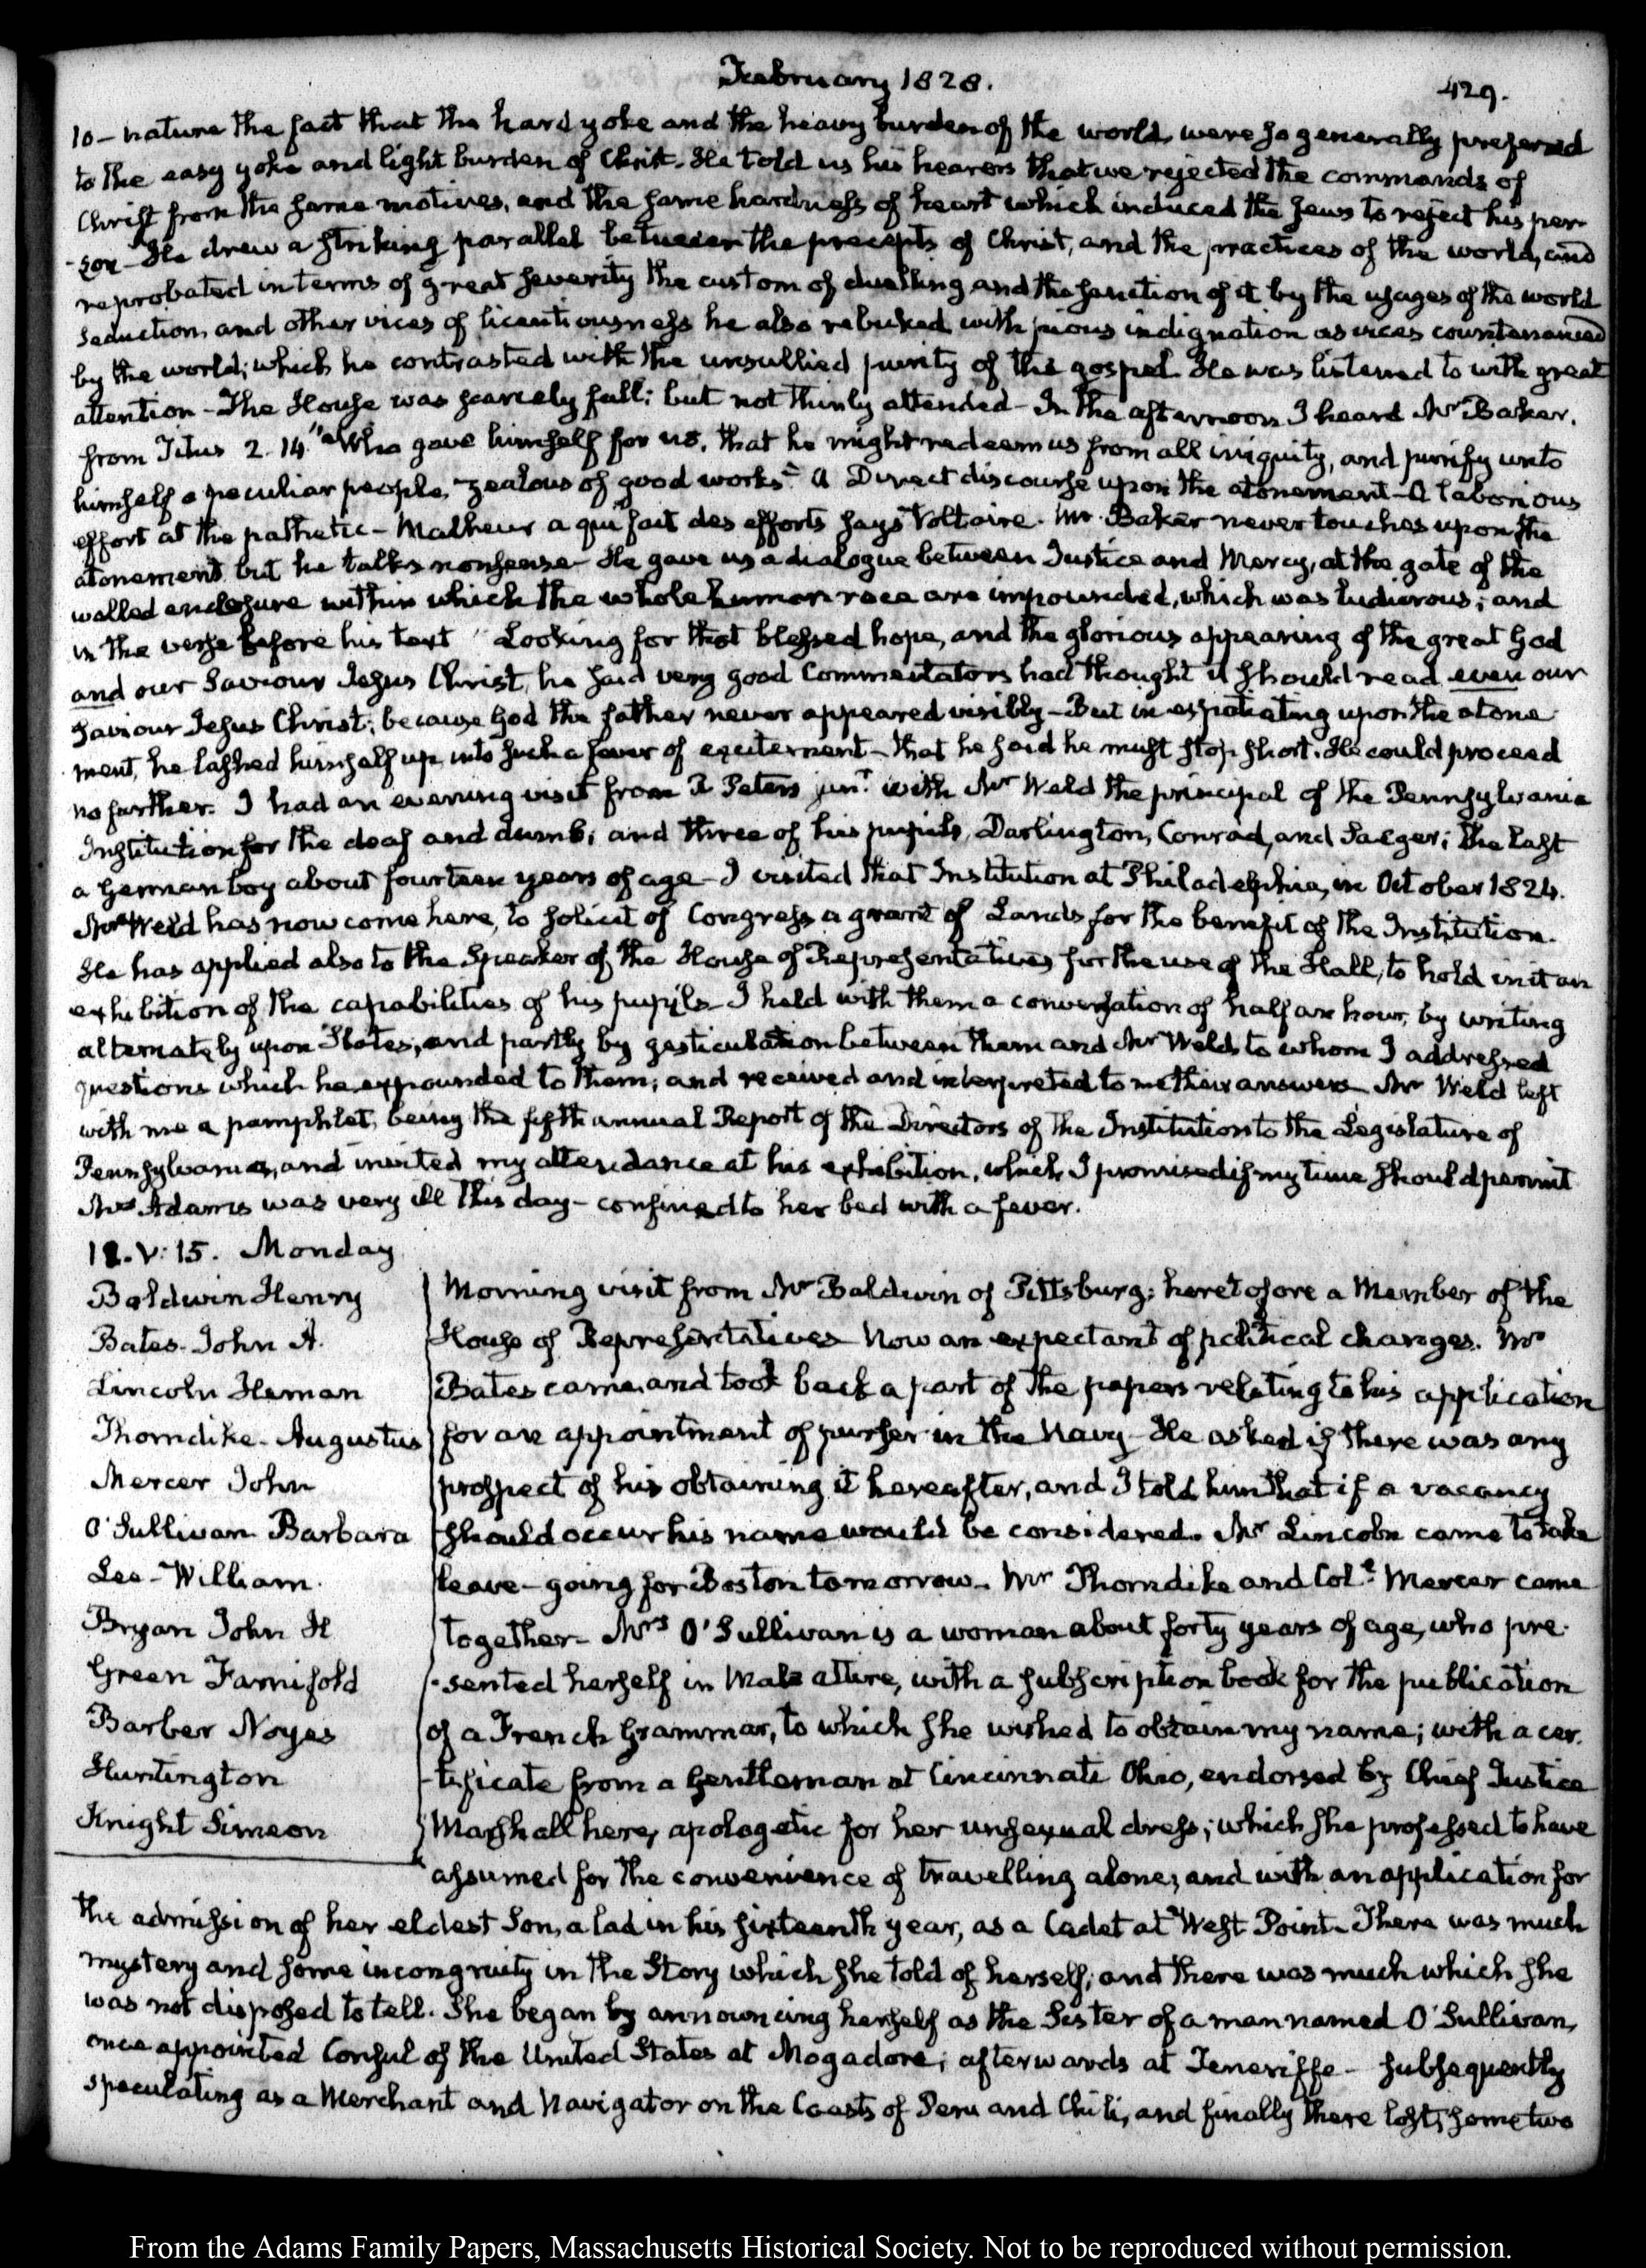 February 1828.
429.
10 - nature the fact that the hard yoke and the heavy burden of the world, were so generally preferred
to the easy yoke and light burden of Christ. He told us his hearers that we rejected the commands of
Christ from the same motives, and the same hardness of heart which induced the Jews to reject his per-
-son - He drew a striking parallel between the precepts of Christ, and the practices of the world, and
reprobated in terms of great severity the custom of duelling and the sanction of it by the usages of the world
Seduction, and other vices of licentiousness he also rebuked with pious indignation as vices countenanced
by the world; which he contrasted with the unsullied purity of the gospel. He was listened to with great
attention - The House was scarcely full; but not thinly attended - In the afternoon I heard Mr Baker.
from Titus 2. 14. "Who gave himself for us, that he might redeem us from all iniquity, and purify unto
himself a peculiar people, zealous of good works" - A Direct discourse upon the atonement - A laborious
effort at the pathetic - Malheur a qui fait des efforts says Voltaire. Mr. Baker never touches upon the
atonement but he talks nonsense - He gave us a dialogue between Justice and Mercy, at the gate of the
walled enclosure within which the whole human race are impounded, which was ludicrous; and
in the verse before his text "Looking for that blessed hope, and the glorious appearing of the great God
and our Saviour Jesus Christ, he said very good Commentators had thought it should read even our
Saviour Jesus Christ; because God the father never appeared visibly - But in expatiating upon the atone
ment, he lashed himself up into such a fever of excitement - that he said he must stop short. He could proceed
no further. I had an evening visit from R Peters junr. with Mr Weld the principal of the Pennsylvania
Institution for the deaf and dumb; and three of his pupils, Darlington, Conrad, and Jaeger; the last
a German boy about fourteen years of age - I visited that Institution at Philadelphia, in October 1824.
Mr Weld has now come here, to solicit of Congress a grant of Lands for the benefit of the Institution.
He has applied also to the Speaker of the House of Representatives for the use of the Hall, to hold in it an
exhibition of the capabilities of his pupils - I held with them a conversation of half an hour, by writing
alternately upon Slates, and partly by gesticulation between them and Mr Weld, to whom I addressed
questions which he expounded to them; and received and interpreted to me their answers - Mr Weld left
with me a pamphlet, being the fifth annual Report of the Directors of the Institution to the Legislature of
Pennsylvania, and invited my attendance at his exhibition, which I promised if my time should permit
Mrs Adams was very ill this day - confined to her bed with a fever.
V: 15. Monday
Baldwin Henry
Bates John A.
Lincoln Heman
Thorndike Augustus
Mercer John
O'Sullivan Barbara
Lee William.
Bryan John H
Green Farnifold
Barber Noyes
Huntington
Knight Simeon
Morning visit from Mr Baldwin of Pittsburg; heretofore a Member of the
House of Representatives - Now an expectant of political changes. Mr
Bates came, and took back a part of the papers relating to his application
for an appointment of purser in the Navy - He asked if there was any
prospect of his obtaining it hereafter, and I told him that if a vacancy
should occur his name would be considered. Mr Lincoln came to take
leave - going for Boston tomorrow. Mr Thorndike and Col. Mercer came
together - Mrs O'Sullivan is a woman about forty years of age, who pre-
-sented herself in male attire, with a subscription book for the publication
of a French Grammar, to which she wished to obtain my name; with a cer-
-tificate from a Gentleman at Cincinnati Ohio, endorsed by Chief Justice
Marshall here, apologetic for her unsexual dress; which she professed to have
assumed for the convenience of travelling alone; and with an application for
the admission of her eldest Son, a lad in his sixteenth year, as a Cadet at West Point - There was much
mystery and some incongruity in the Story which she told of herself; and there was much which she
was not disposed to tell. She began by announcing herself as the Sister of a man named O'Sullivan,
once appointed Consul of the United States at Mogadore; afterwards at Teneriffe - subsequently
speculating as a Merchant and Navigator on the Coasts of Peru and Chili, and finally there lost, some two
From the Adams Family Papers, Massachusetts Historical Society. Not to be reproduced without permission.